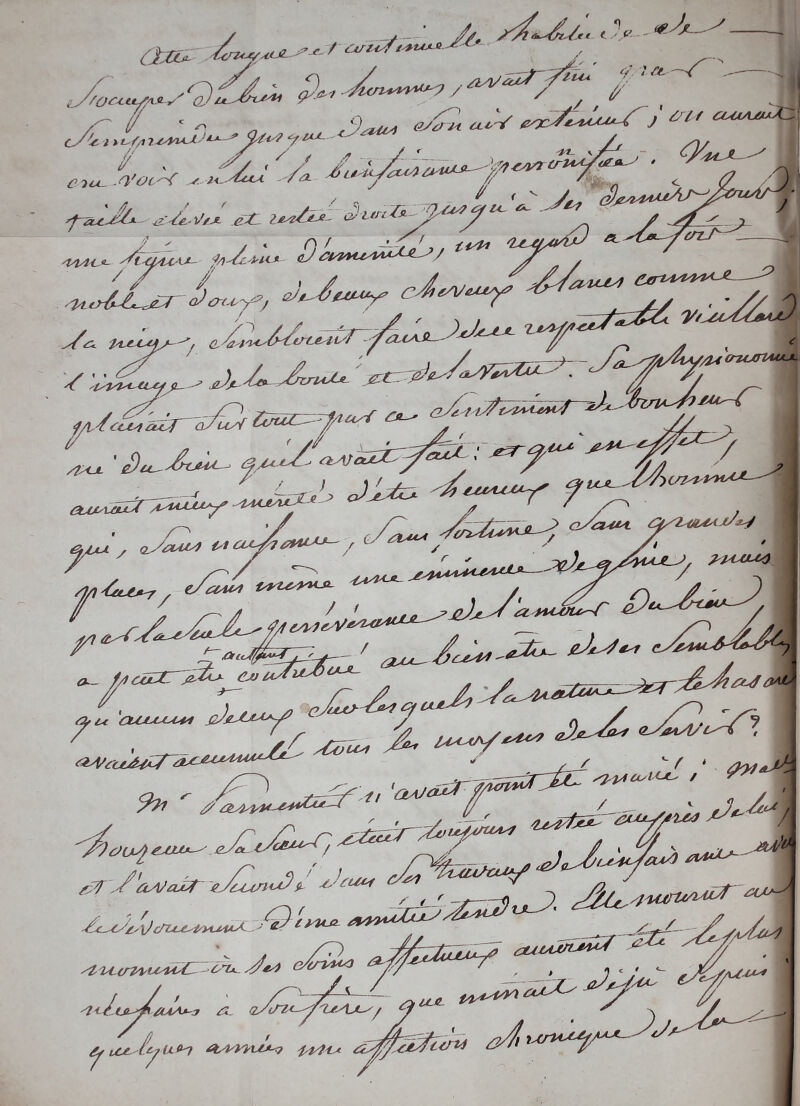 Cette longue et continuelle habitude de
s'occuper du bien des hommes, avait fini par
s'empreindre jusque dans son air extérieur ; on aurait
cru voir en lui la bienfaisance personnifiée. Une
taille elevée et restée droite jusqu'à ses derniers jours ;
une figure pleine d'aménité, un regard a la fois
noble et doux, de beaux cheveux blancs comme
la neige, sembloient faire de ce respectable vieillard
l'image de la bonté et de la vertu. Sa physionomie
plaisait surtout par ce sentiment de bonheur
né du bien qu'il avait fait : et qui en effet,
aurait mieux mérité d'être heureux que l'homme
qui, sans naissance, sans fortune, sans grandes
places, sans même une éminence de génie, mais
par la seule persévérance de l'amour du bien,
a peut être autant contribué au bien-etre de ses semblables
qu'aucun de ceux sur lesquels la nature et le hasard
avaient accumulé tous les moyens de les servir ?
Mr Parmentier n'avait point été marié ; Made
houzeau sa sœur, était toujours restée auprès de lui,
et l'avait secondé dans ses travaux de bienfaisance avec
le dévouement d'une amitié tendre. Elle mourut au
moment où ses soins affectueux auroient été le plus
nécessaires à son frère, que minait déjà depuis
quelques années une affection chronique de la